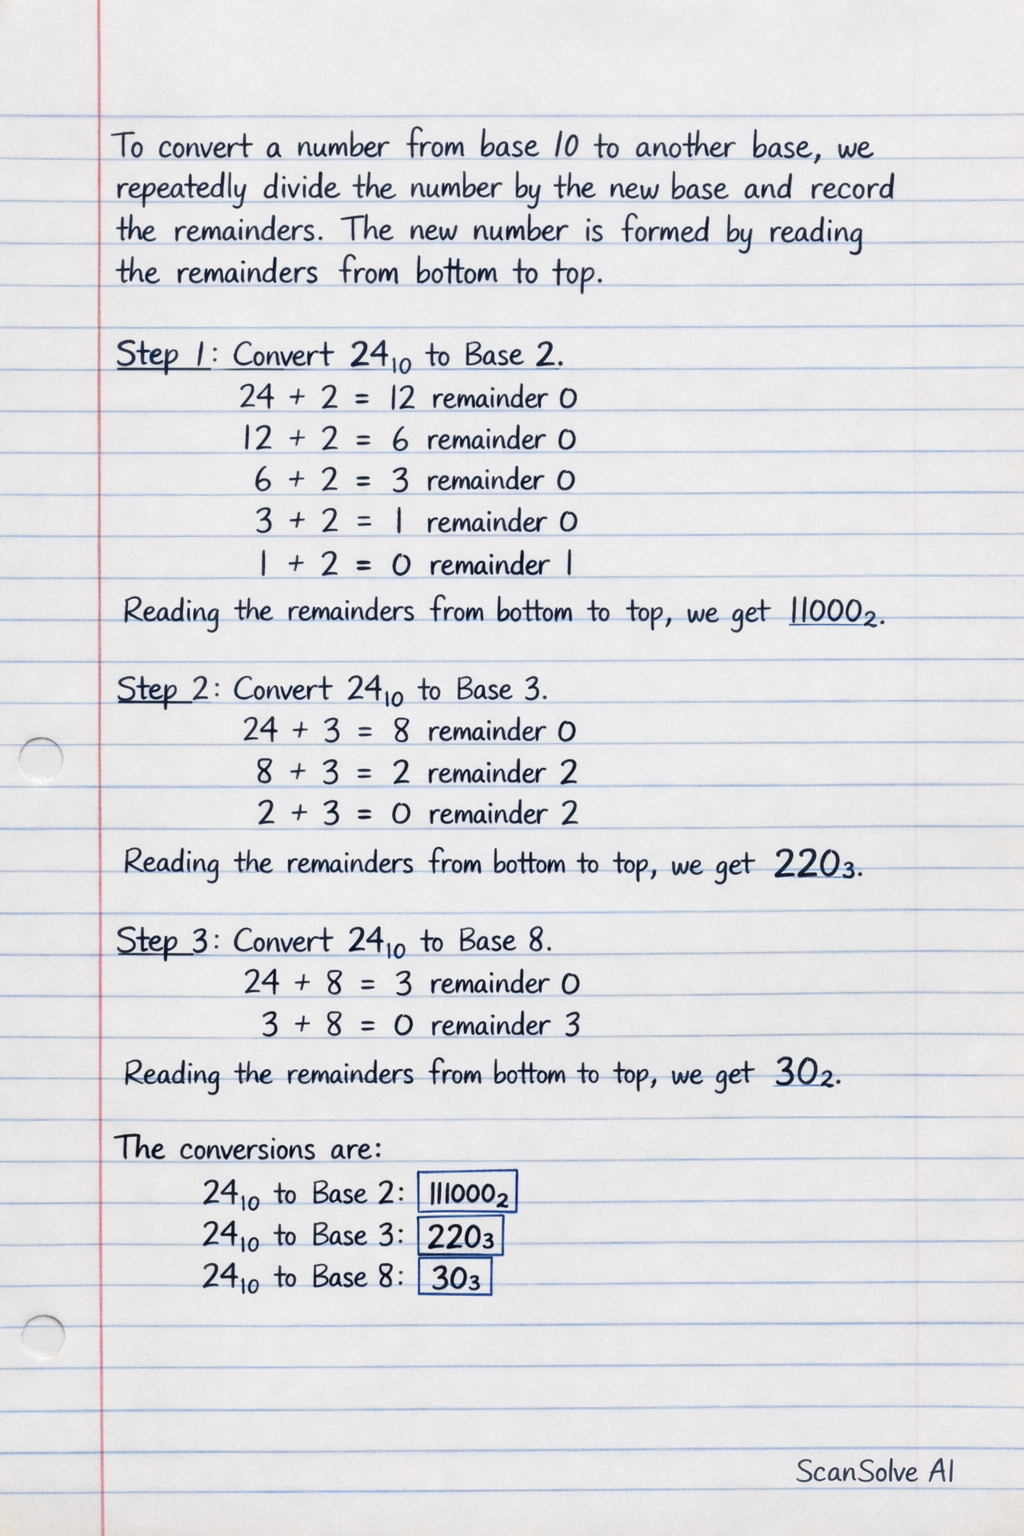 To convert a number from base 10 to another base, we
repeatedly divide the number by the new base and record
the remainders. The new number is formed by reading
the remainders from bottom to top.
Step 1: Convert 24₁₀ to Base 2.
24 + 2 = 12 remainder 0
12 + 2 = 6 remainder 0
6 + 2 = 3 remainder 0
3 + 2 = 1 remainder 0
1 + 2 = 0 remainder 1
Reading the remainders from bottom to top, we get 11000₂.
Step 2: Convert 24₁₀ to Base 3.
24 + 3 = 8 remainder 0
8 + 3 = 2 remainder 2
2 + 3 = 0 remainder 2
Reading the remainders from bottom to top, we get 220₃.
Step 3: Convert 24₁₀ to Base 8.
24 + 8 = 3 remainder 0
3 + 8 = 0 remainder 3
Reading the remainders from bottom to top, we get 30₂.
The conversions are:
24₁₀ to Base 2: 111000₂
24₁₀ to Base 3: 220₃
24₁₀ to Base 8: 30₃
ScanSolve AI